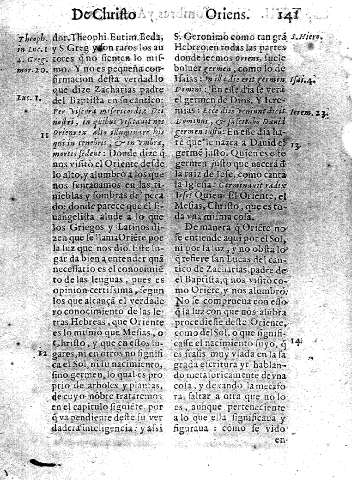 De Christo Oriens. 141
Theoph.
in Luc. 1
a. Greg.
mor. 20.
Luc. 1.
11
12
dor. Theophi. Eutim. Beda,
y S Greg y son raros los au
tores que no sienten lo mis
mo. Y no es pequeña con-
firmacion desta verdad lo
que dize Zacharias padre
del Baptista en su cantico:
Per viscera misericordiæ Dei
nostri, in quibus visitauit nos
Oriens ex alto illuminare his
qui in tenebris, & in vmbra,
mortis sedent: Donde dize q̃
nos visito el Oriente desde
lo alto, y alumbro a los que
nos sentabamos en las ti-
nieblas y sombras de peca
do: donde parece que el E-
uangelista alude a lo que
los Griegos y Latinos di-
zen que se llama Oriēte por
q̃ su luz nos dio. Este lu-
gar da bien a entender quã
necessario es el conocimiē
to de las lenguas, pues es
opinion certissima, segun
los que alcançã el verdade
ro conocimiento de las le
tras Hebreas, que Oriente
es lo mismo que Mesias, o
Christo, y que en estos lu-
gares, ni en otros no signifi
ca el Sol, ni su nacimiento,
sino germen, lo qual es pro
prio de arboles y plantas,
de cuyo nõbre trataremos
en el capitulo siguiēte, por
q̃ va pendiente deste su ver
dadera inteligencia: y assi
S. Geronimo como tan grã
Hebreo, en todas las partes
donde leemos oriens, suele
boluer germen, como lo de
Isaias: In die illa erit germen
Domini: En este dia se verá
el germen de Dios, Y Iere-
mias: Ecce dies venient dicit
Dominus, & suscitabo Dauid
germen iustum: En esse dia ha
re que le nazca a Dauid el
germe justo. Quien es este
germen justo que nacerá a
la raiz de Iese, como canta
la Iglesia: Germinauit radix
Iesse? Quien? El Oriente, el
Mesias, Christo, que es to-
da vna misma cosa.
De manera q̃ Oriēte no
se entiende aqui por el Sol,
ni por la luz, y no obsta lo q̃
refiere san Lucas del canti-
co de Zacharias padre de
el Baptista, q̃ nos visito co
mo Oriente, y nos alumbro.
No se comprueua con esso
q̃ la luz con que nos alubra
procediesse deste Oriente,
como del Sol, o que signifi-
casse el nacimiento suyo, q̃
es frasis muy vsada en la sa
grada escritura yr hablan-
do metaforicamente de vna
cola, y dexando la metafo
ra, saltar a otra que no lo
es, aunque perteneciente
a lo que ella significaua y
figuraua: como se vido
en-
S. Hiero.
Isai. 4.
Ierem. 23.
13
14